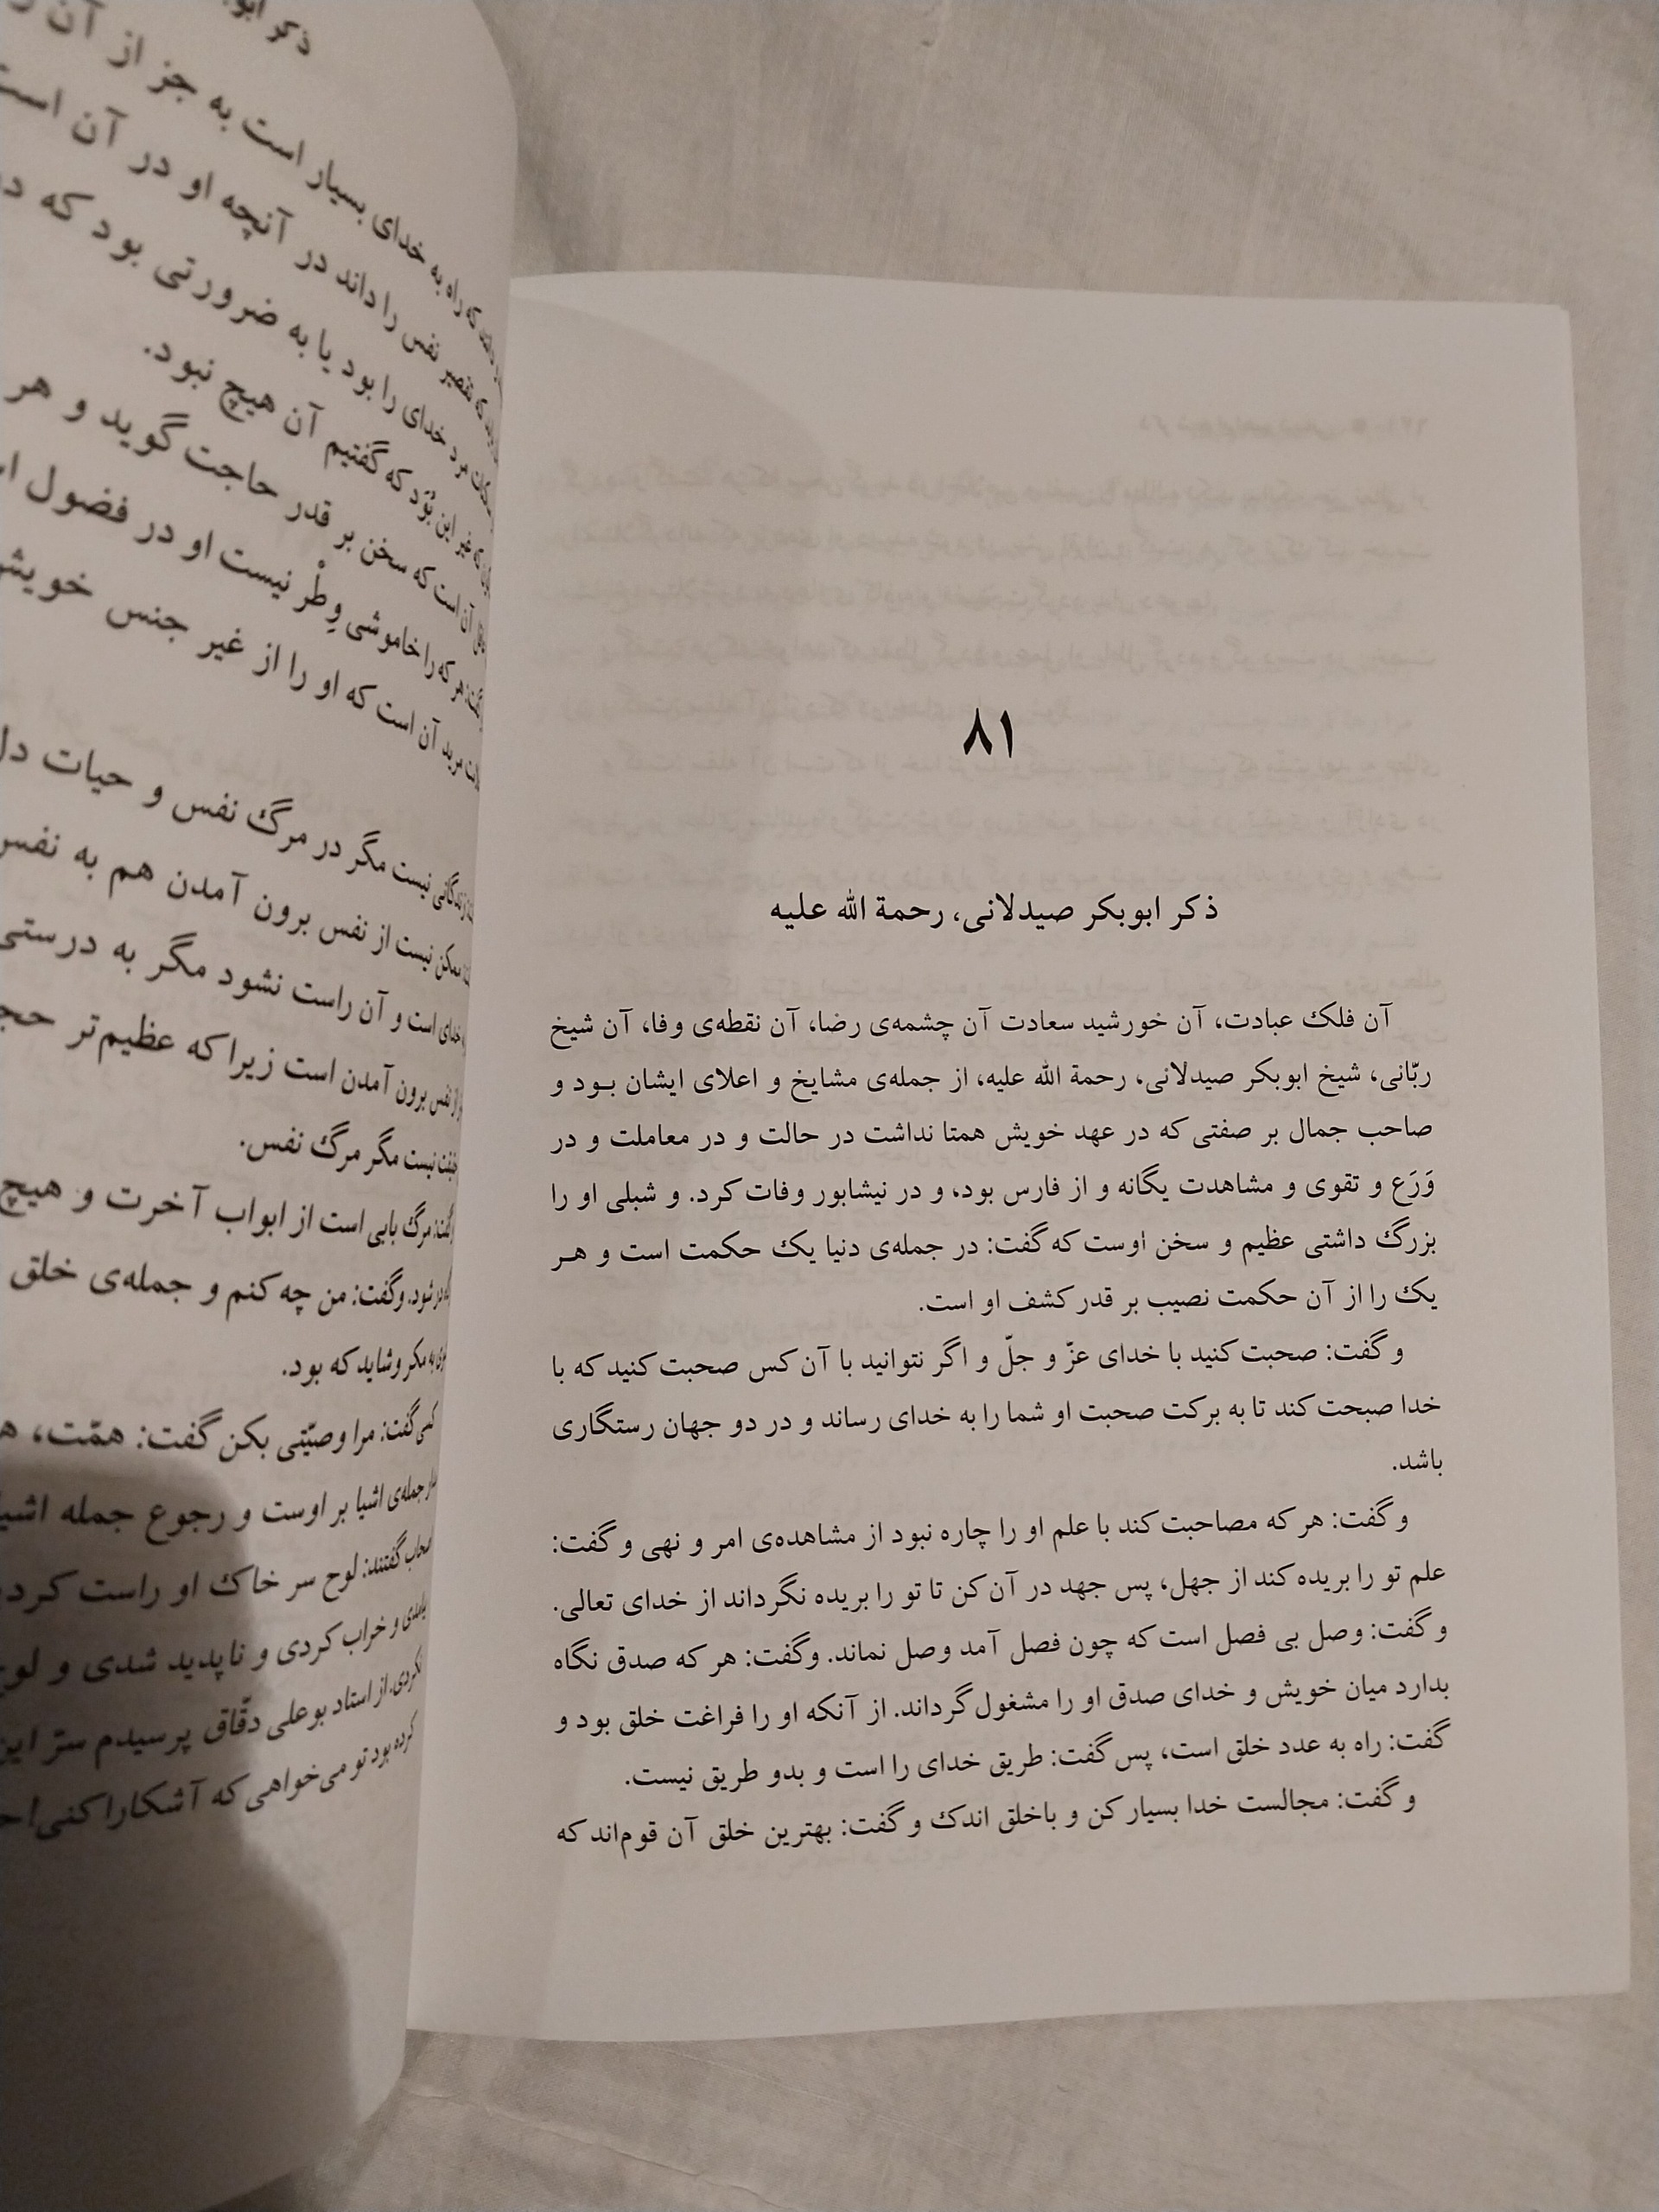 ۸۱
ذکر ابوبکر صیدلانی، رحمة الله علیه
آن فلک عبادت، آن خورشید سعادت آن چشمه‌ی رضا، آن نقطه‌ی وفا، آن شیخ
ربّانی، شیخ ابوبکر صیدلانی، رحمة الله علیه، از جمله‌ی مشایخ و اعلای ایشان بود و
صاحب جمال بر صفتی که در عهد خویش همتا نداشت در حالت و در معاملت و در
وَرَع و تقوی و مشاهدت یگانه و از فارس بود، و در نیشابور وفات کرد. و شبلی او را
بزرگ داشتی عظیم و سخن اوست که گفت: در جمله‌ی دنیا یک حکمت است و هر
یک را از آن حکمت نصیب بر قدر کشف او است.
و گفت: صحبت کنید با خدای عزّ و جلّ و اگر نتوانید با آن کس صحبت کنید که با
خدا صبحت کند تا به برکت صحبت او شما را به خدای رساند و در دو جهان رستگاری
باشد.
و گفت: هر که مصاحبت کند با علم او را چاره نبود از مشاهده‌ی امر و نهی و گفت:
علم تو را بریده کند از جهل، پس جهد در آن کن تا تو را بریده نگرداند از خدای تعالی.
و گفت: وصل بی فصل است که چون فصل آمد وصل نماند. وگفت: هر که صدق نگاه
بدارد میان خویش و خدای صدق او را مشغول گرداند. از آنکه او را فراغت خلق بود و
گفت: راه به عدد خلق است، پس گفت: طریق خدای را است و بدو طریق نیست.
و گفت: مجالست خدا بسیار کن و باخلق اندک و گفت: بهترین خلق آن قوم‌اند که
ذکر
که راه به خدای بسیار است به جز از آن
نفس را داند در آنچه او در آن است
خدای را بود یا به ضرورتی بود که
غیر این بُوَد که گفتیم آن هیچ نبود.
آن است که سخن بر قدر حاجت گوید و هر
هر که را خاموشی وِطْر نیست او در فضول
مرید آن است که او را از غیر جنس خویش
زندگانی نیست مگر در مرگ نفس و حیات دل
ممکن نیست از نفس برون آمدن هم به نفس
خدای است و آن راست نشود مگر به درستی
از نفس برون آمدن است زیرا که عظیم‌تر
نیست مگر مرگ نفس.
گفت: مرگ بابی است از ابواب آخرت و هیچ
شود. وگفت: من چه کنم و جمله‌ی خلق
به مکر و شاید که بود.
کسی گفت: مرا وصیّتی بکن گفت: همّت،
جمله‌ی اشیا بر اوست و رجوع جمله
اصحاب گفتند: لوح سر خاک او راست
و خراب کردی و ناپدید شدی و لوح
نکردی. از استاد بوعلی دقّاق پرسیدم سرّ این
کرده بود تو می‌خواهی که آشکارا کنی